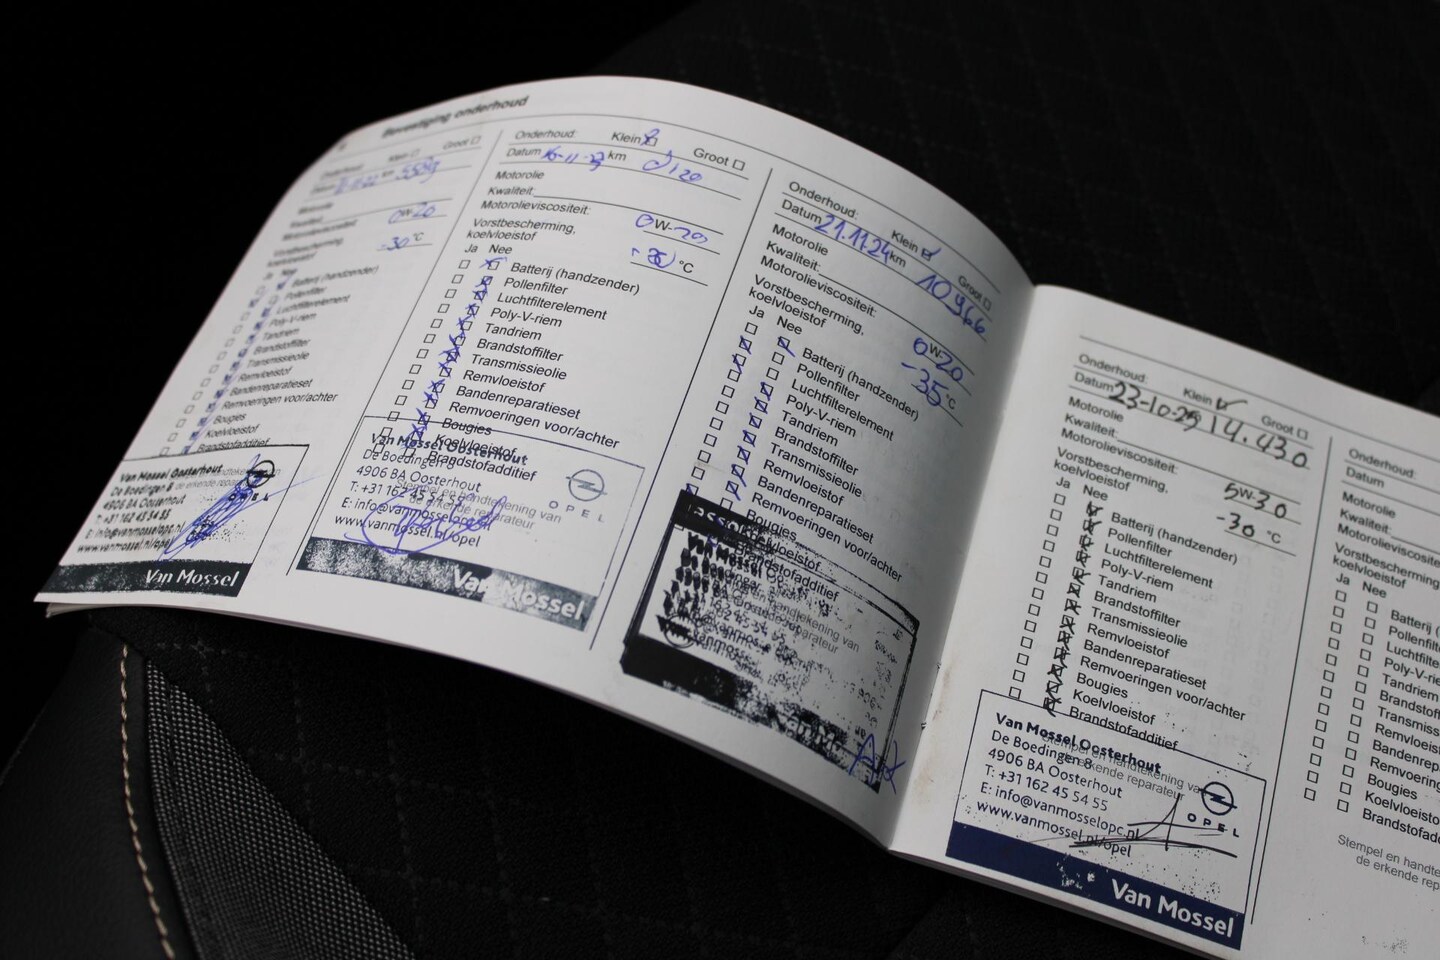 Bevestiging onderhoud
Onderhoud: Klein Groot
Datum km
Motorolie
Kwaliteit:
Motorolieviscositeit: 0W-20
Vorstbescherming,
koelvloeistof -30 °C
Ja Nee
Batterij (handzender)
Pollenfilter
Luchtfilterelement
Poly-V-riem
Tandriem
Brandstoffilter
Transmissieolie
Remvloeistof
Bandenreparatieset
Remvoeringen voor/achter
Bougies
Koelvloeistof
Brandstofadditief
Van Mossel Oosterhout
De Boedingen 8
4906 BA Oosterhout
T: +31 162 45 54 55
E: info@vanmosselopc.nl
www.vanmossel.nl/opel
OPEL
Van Mossel
Onderhoud: Klein Groot
Datum 16-11-23 km
Motorolie
Kwaliteit:
Motorolieviscositeit: 0W-20
Vorstbescherming,
koelvloeistof °C
Ja Nee
Batterij (handzender)
Pollenfilter
Luchtfilterelement
Poly-V-riem
Tandriem
Brandstoffilter
Transmissieolie
Remvloeistof
Bandenreparatieset
Remvoeringen voor/achter
Bougies
Koelvloeistof
Brandstofadditief
Van Mossel Oosterhout
De Boedingen 8
4906 BA Oosterhout
Stempel en handtekening van
de erkende reparateur
T: +31 162 45 54 55
E: info@vanmosselopc.nl
www.vanmossel.nl/opel
OPEL
Van Mossel
Onderhoud: Klein Groot
Datum 21.11.24 km 10966
Motorolie
Kwaliteit:
Motorolieviscositeit: 0W20
Vorstbescherming,
koelvloeistof -35 °C
Ja Nee
Batterij (handzender)
Pollenfilter
Luchtfilterelement
Poly-V-riem
Tandriem
Brandstoffilter
Transmissieolie
Remvloeistof
Bandenreparatieset
Remvoeringen voor/achter
Bougies
Koelvloeistof
Brandstofadditief
Onderhoud: Klein Groot
Datum 23-10-25 14.430
Motorolie
Kwaliteit:
Motorolieviscositeit: 5W-30
Vorstbescherming,
koelvloeistof -30 °C
Ja Nee
Batterij (handzender)
Pollenfilter
Luchtfilterelement
Poly-V-riem
Tandriem
Brandstoffilter
Transmissieolie
Remvloeistof
Bandenreparatieset
Remvoeringen voor/achter
Bougies
Koelvloeistof
Brandstofadditief
Van Mossel Oosterhout
De Boedingen 8
Stempel en handtekening van
de erkende reparateur
4906 BA Oosterhout
T: +31 162 45 54 55
E: info@vanmosselopc.nl
www.vanmossel.nl/opel
OPEL
Van Mossel
Onderhoud:
Datum
Motorolie
Kwaliteit:
Motorolieviscositeit:
Vorstbescherming
koelvloeistof
Ja Nee
Batterij (
Pollenfilt
Luchtfilte
Poly-V-rie
Tandriem
Brandstof
Transmiss
Remvloeis
Bandenrep
Remvoering
Bougies
Koelvloeisto
Brandstofadd
Stempel en handte
de erkende rep